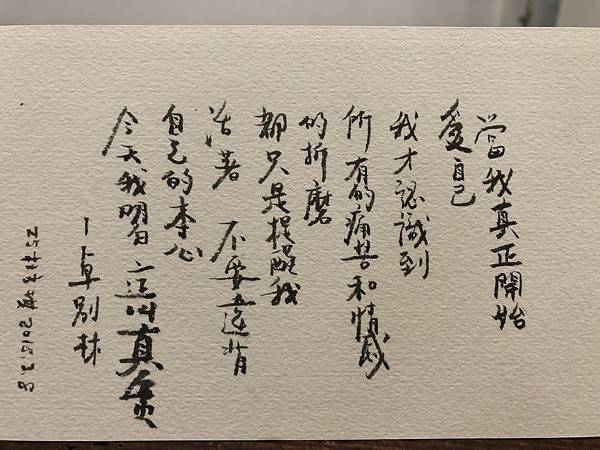 當我真正開始
愛自己
我才認識到
所有的痛苦和情感
的折磨
都只是提醒我
活著 不要違背
自己的本心
今天我明白 這叫真實
—卓別林